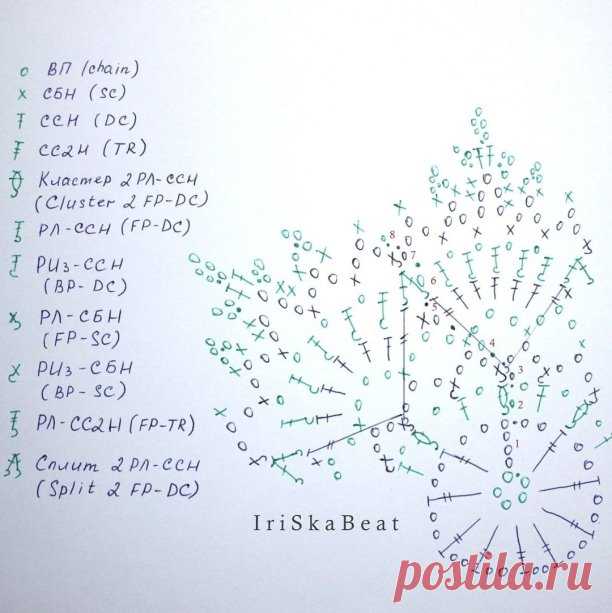 ВП (chain)
СБН (SC)
ССН (DC)
СС2Н (TR)
Кластер 2РЛ-ССН
(Cluster 2 FP-DC)
РЛ-ССН (FP-DC)
РИз-ССН
(BP-DC)
РЛ-СБН
(FP-SC)
РИз-СБН
(BP-SC)
РЛ-СС2Н (FP-TR)
Сплит 2РЛ-ССН
(Split 2 FP-DC)
8
7
6
5
4
3
2
1
IriSkaBeat
postila.ru